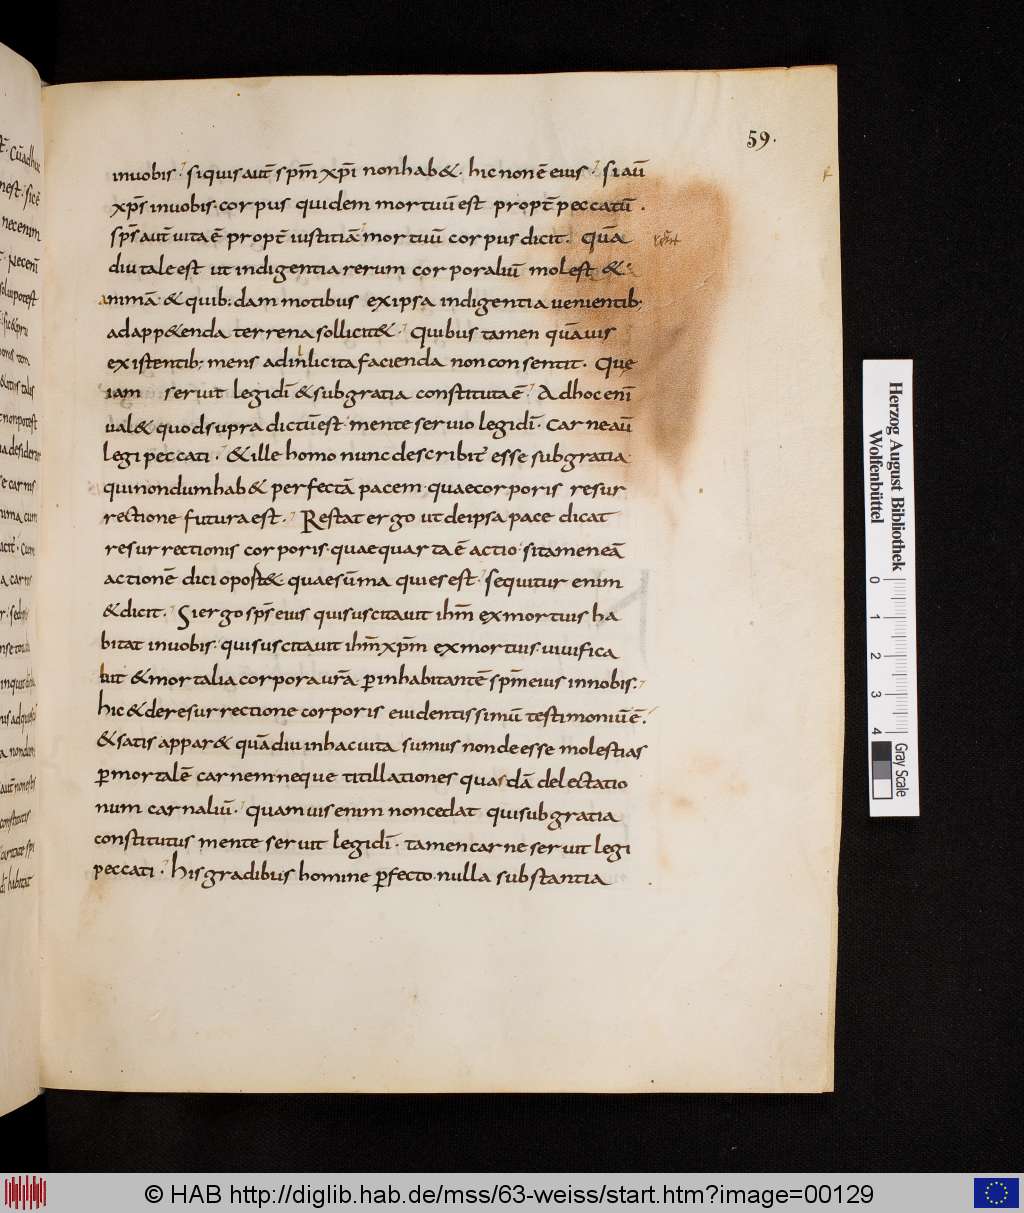 59.
inuobis · siquis aut̄ sp̄m xp̄i nonhab& · hic non ē eius · si aū
xp̄s inuobis · corpus quidem mortuū est propt̄ peccatū ·
sp̄s aut̄ uita ē propt̄ iustitiā mortuū corpus dicit · Quā
diu tale est ut indigentia rerum corporaliū molest&
animā · & quib:dam motibus ex ipsa indigentia uenientib;
ad app&enda terrena sollicit& · Quibus tamen quāuis
existentib; mens ad inlicita facienda non consentit · Que
iam seruit legi dī & sub gratia constituta ē · Ad hoc enī
ual& quod supra dictū est · mente seruio legi dī · Carne aū
legi peccati · & ille homo nunc describit̄ esse sub gratia
qui nondum hab& perfectā pacem · quae corporis resur
rectione futura est · Restat ergo ut de ipsa pace dicat
resurrectionis corporis · quae quarta ē actio · si tamen eā
actionē dici oport& quae sūma quies est · sequitur enim
& dicit · Si ergo sp̄s eius qui suscitauit ih̄m ex mortuis ha
bitat in uobis · qui suscitauit ih̄m xp̄m ex mortuis · uiuifica
bit & mortalia corpora ur̄a · p̄ inhabitantē sp̄m eius in nobis ·
hic & de resurrectione corporis euidentissimū testimoniū ē ·
& satis appar& quādiu in hac uita sumus non deesse molestias
p̄ mortalē carnem neque titillationes quasdā delectatio
num carnaliū · quamuis enim non cedat qui sub gratia
constitutus mente seruit legi dī · tamen carne seruit legi
peccati · his gradibus homine p̄fecto · nulla substantia
Herzog August Bibliothek
Wolfenbüttel
0 1 2 3 4
Gray Scale
© HAB http://diglib.hab.de/mss/63-weiss/start.htm?image=00129